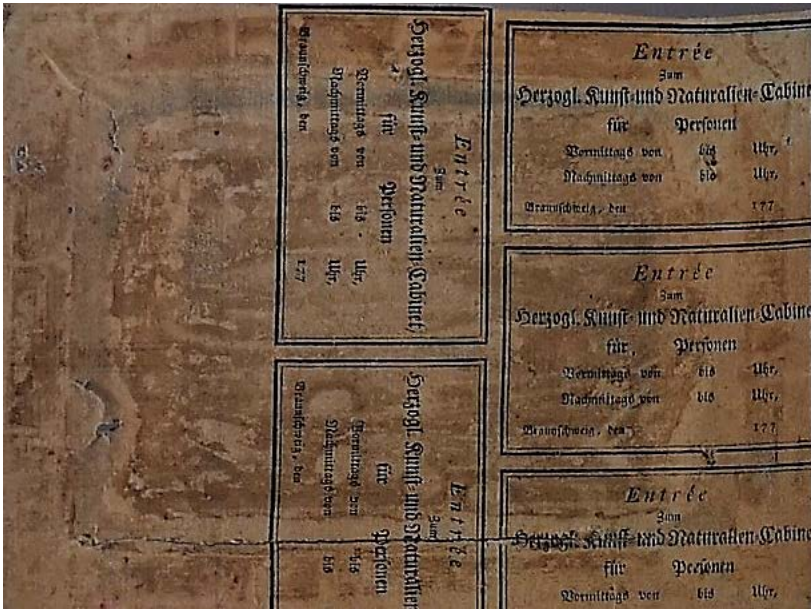 Entrée
Zum
Herzogl. Kunst- und Naturalien-Cabinet,
für Personen
Vormittags von bis Uhr,
Nachmittags von bis Uhr,
Braunschweig, den 177
Entrée
Zum
Herzogl. Kunst- und Naturalien
für Personen
Vormittags von bis
Nachmittags von bis
Braunschweig, den
Entrée
Zum
Herzogl. Kunst-und Naturalien-Cabine
für Personen
Vormittags von bis Uhr,
Nachmittags von bis Uhr,
Braunschweig, den 177
Entrée
Zum
Herzogl. Kunst- und Naturalien-Cabine
für Personen
Vormittags von bis Uhr,
Nachmittags von bis Uhr,
Braunschweig, den 177
Entrée
Zum
Herzogl. Kunst- und Naturalien-Cabine
für Personen
Vormittags von bis Uhr,